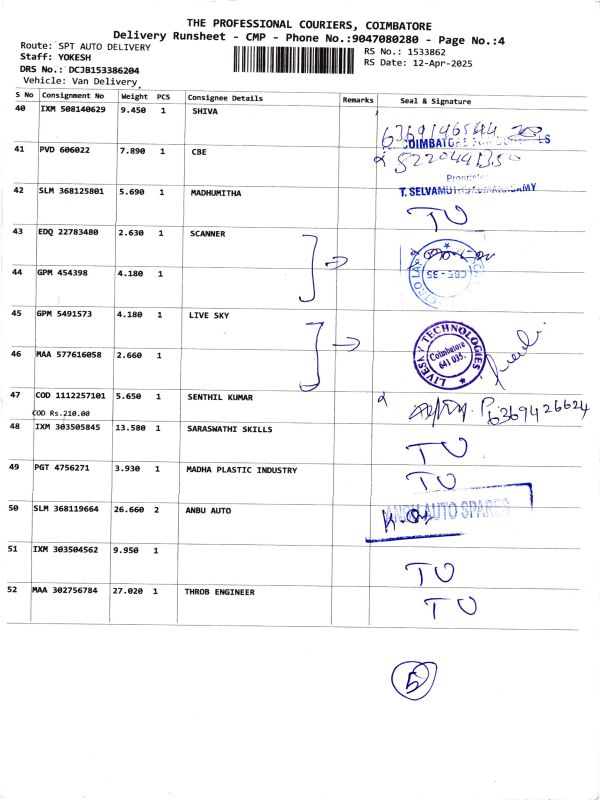 THE PROFESSIONAL COURIERS, COIMBATORE
Delivery Runsheet - CMP - Phone No.:9047080280 - Page No.:4
Route: SPT AUTO DELIVERY
RS No.: 1533862
Staff: YOKESH
RS Date: 12-Apr-2025
DRS No.: DCJB153386204
Vehicle: Van Delivery
S No Consignment No Weight PCS Consignee Details Remarks Seal & Signature
40 IXM 508140629 9.450 1 SHIVA
COIMBATORE
41 PVD 606022 7.890 1 CBE
5220441350
Proprietor
42 SLM 368125801 5.690 1 MADHUMITHA
TU
43 EDQ 22783480 2.630 1 SCANNER
44 GPM 454398 4.180 1
CBE - 35
45 GPM 5491573 4.180 1 LIVE SKY
LIVESKY TECHNOLOGIES
Coimbatore
641 035.
46 MAA 577616058 2.660 1
47 COD 1112257101 5.650 1 SENTHIL KUMAR
6369426624
COD Rs.210.00
48 IXM 303505845 13.580 1 SARASWATHI SKILLS
TU
49 PGT 4756271 3.930 1 MADHA PLASTIC INDUSTRY
TU
50 SLM 368119664 26.660 2 ANBU AUTO
ANBU AUTO SPARES
51 IXM 303504562 9.950 1
TU
52 MAA 302756784 27.020 1 THROB ENGINEER
TU
5